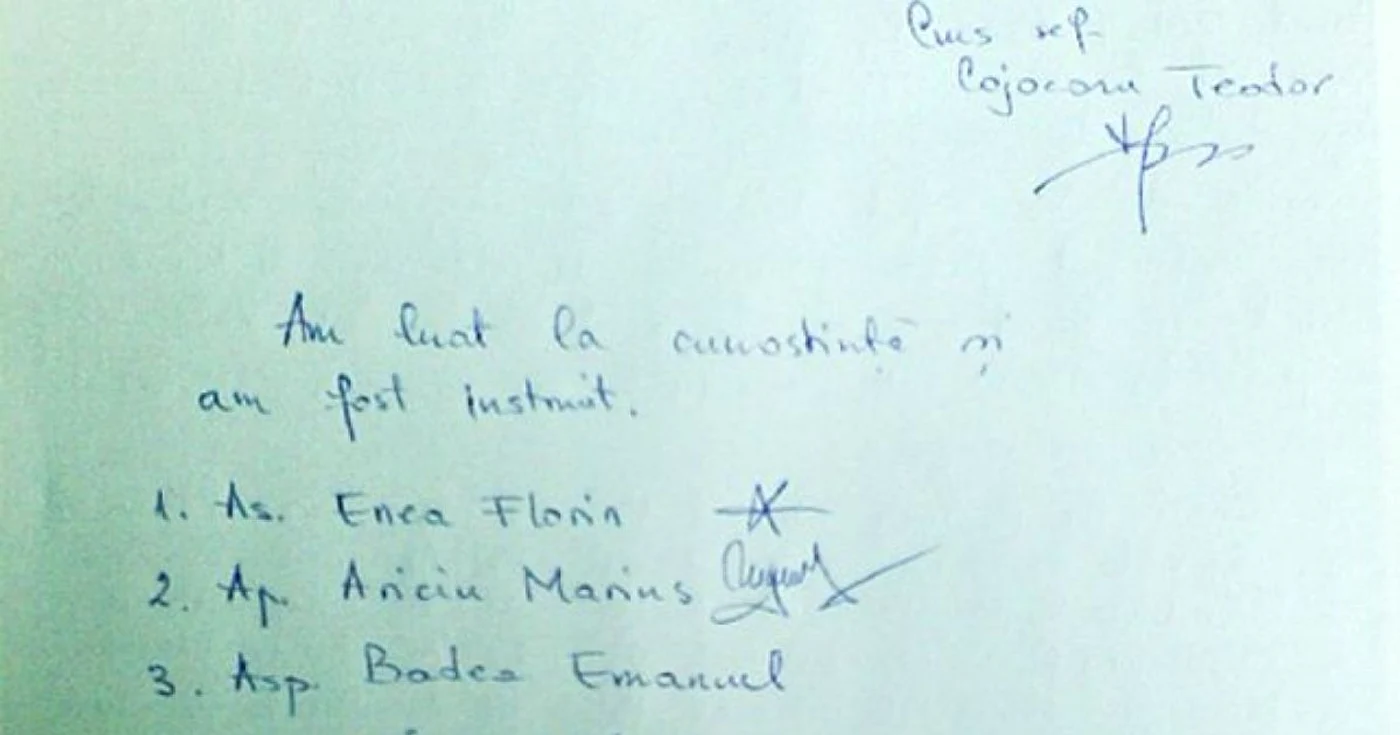 Cms șef
Cojocaru Teodor
Am luat la cunoștință și
am fost instruit.
1. As. Enea Florin
2. Ap. Ariciu Marius
3. Asp. Badea Emanuel